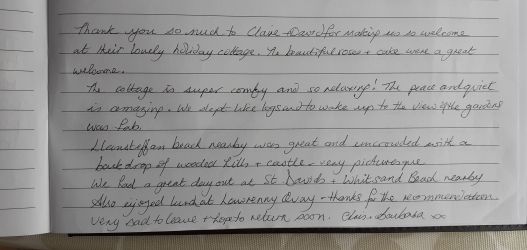 Thank you so much to Claire + David for making us so welcome
at their lovely holiday cottage. The beautiful roses + cake were a great
welcome.
The cottage is super comfy and so relaxing! The peace and quiet
is amazing. We slept like logs and to wake up to the view of the gardens
was fab.
Llansteffan beach nearby was great and uncrowded with a
backdrop of wooded hills + castle - very picturesque
We had a great day out at St Davids + Whitesand Beach nearby
Also enjoyed lunch at Lawrenny Quay - thanks for the recommendation
very sad to leave + hope to return soon. Chris + Barbara xx